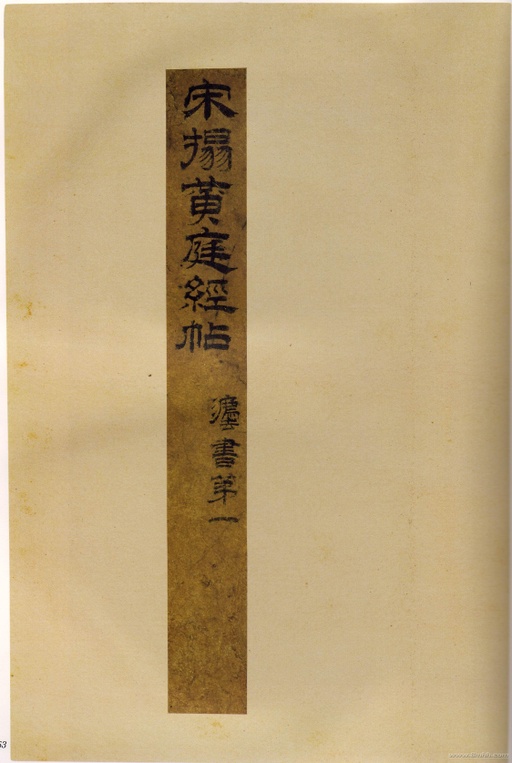 宋搨黃庭經帖
書第一
53